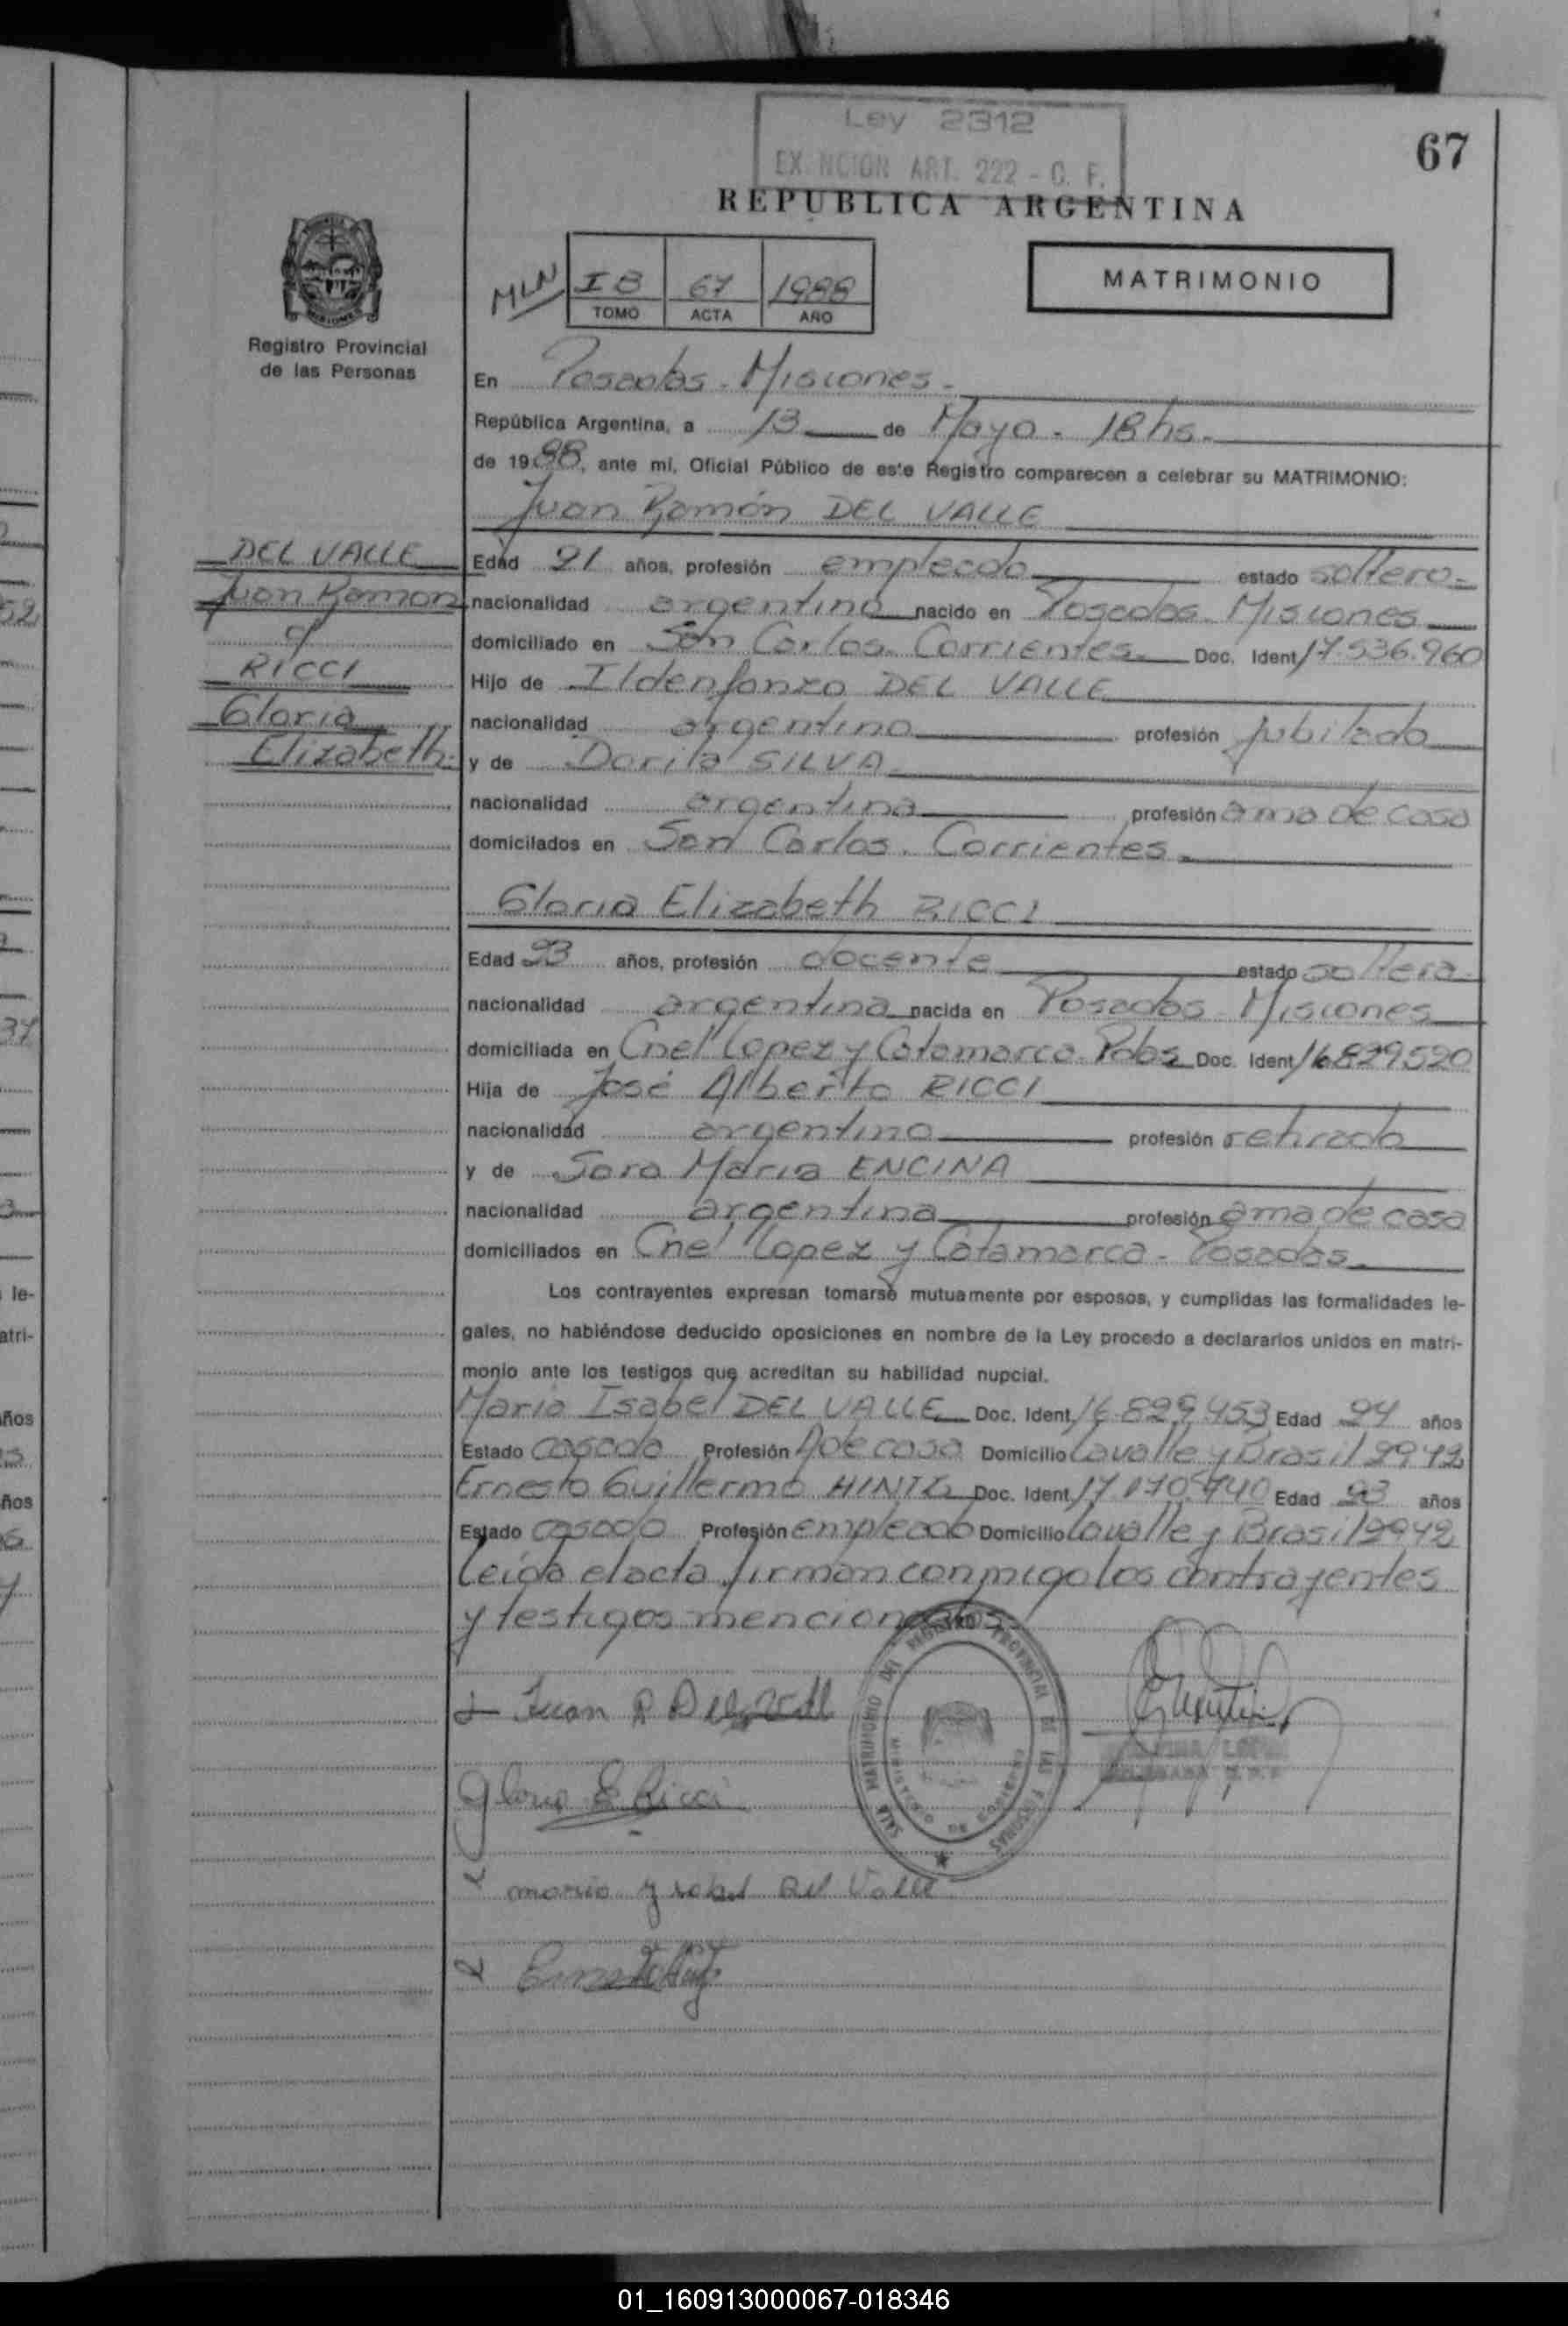 Ley 2312
EX NCION ART. 222 - C. F.
67
REPUBLICA ARGENTINA
MLN
I B 67 1988
TOMO ACTA AÑO
MATRIMONIO
Registro Provincial
de las Personas
En Posadas - Misiones -
República Argentina, a 13 de Mayo - 18 hs.
de 1988, ante mí, Oficial Público de este Registro comparecen a celebrar su MATRIMONIO:
Juan Ramón DEL VALLE
DEL VALLE
Juan Ramon
RICCI
Gloria
Elizabeth.
Edad 21 años, profesión empleado estado soltero-
nacionalidad argentino nacido en Posadas Misiones
domiciliado en San Carlos. Corrientes Doc. Ident 17.536.960
Hijo de Ildenfonzo DEL VALLE
nacionalidad argentino profesión jubilado
y de Dorila SILVA
nacionalidad argentina profesión ama de casa
domicilados en San Carlos. Corrientes
Gloria Elizabeth RICCI
Edad 23 años, profesión docente estado soltera
nacionalidad argentina nacida en Posadas Misiones
domiciliada en Cnel Lopez y Catamarca Pdas Doc. Ident 16829520
Hija de José Alberto RICCI
nacionalidad argentino profesión retirado
y de Sara Maria ENCINA
nacionalidad argentina profesión ama de casa
domiciliados en Cnel Lopez y Catamarca - Posadas
Los contrayentes expresan tomarse mutuamente por esposos, y cumplidas las formalidades le-
gales, no habiéndose deducido oposiciones en nombre de la Ley procedo a declararlos unidos en matri-
monio ante los testigos que acreditan su habilidad nupcial.
Maria Isabel DEL VALLE Doc. Ident. 16.829.453 Edad 24 años
Estado casada Profesión A de casa Domicilio Lavalle y Brasil 2942
Ernesto Guillermo Doc. Ident. Edad 23 años
Estado casado Profesión empleado Domicilio Lavalle y Brasil 2942
Leida el acta firman conmigo los contrayentes
y testigos mencionados
SALA MATRIMONIO DEL REGISTRO PROVINCIAL DE LAS PERSONAS
MINISTERIO DE GOBIERNO
Juan R Del Valle
Gloria E Ricci
maria ysabel del Valle
01_160913000067-018346